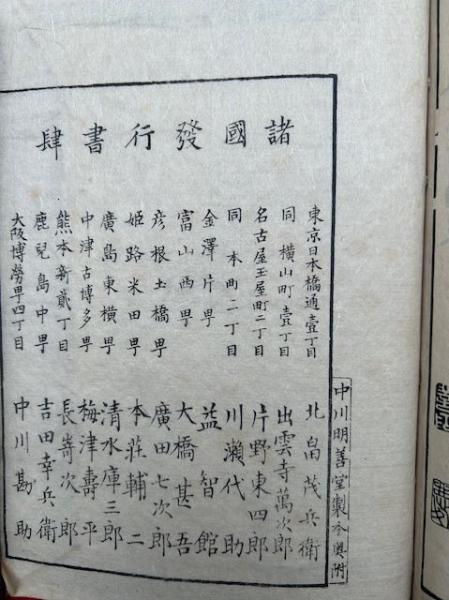 諸國發行書肆
東京日本橋通壹丁目 北畠茂兵衛
同 横山町壹丁目 出雲寺萬次郎
名古屋玉屋町二丁目 片野東四郎
同 本町二丁目 川瀬代助
金澤片甼 益智館
富山西甼 大橋甚吾
彦根土橋甼 廣田七次郎
姫路米田甼 本莊輔二
廣島東横甼 清水庫三郎
中津古博多甼 梅津壽平
熊本新貳丁目 長嵜次郎
鹿兒島中甼 吉田幸兵衛
大阪博勞甼四丁目 中川勘助
中川明善堂製本奥附